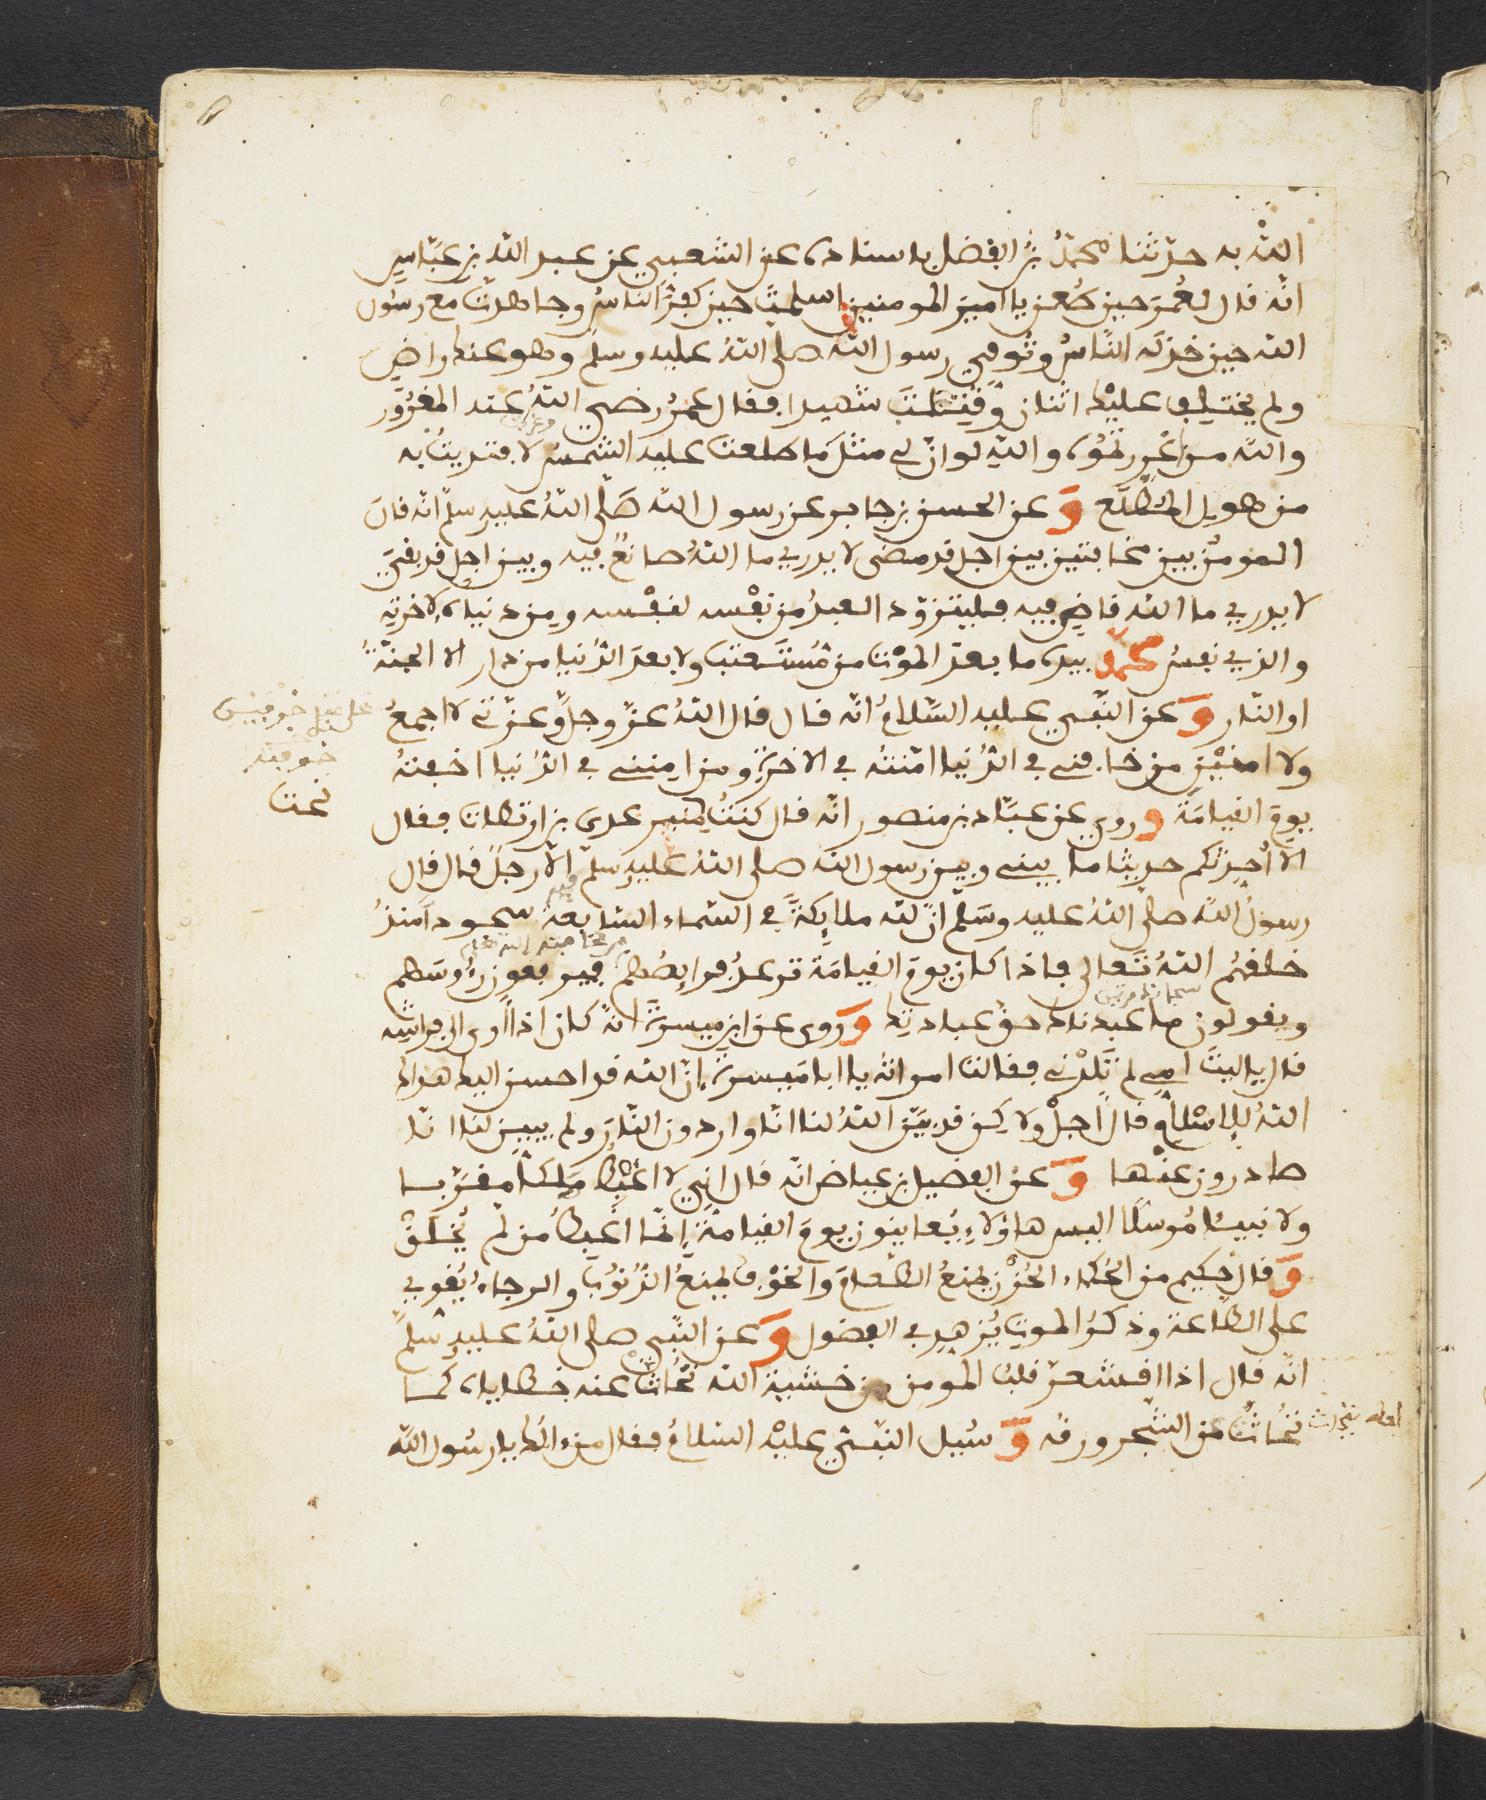 الله به حدثنا محمدُ بنُ الفضل باسناده عن الشعبي عن عبد الله بن عبّاس
انه قال لعُمَرَ حين طُعن يا امير المومنين اسلمتَ حين كفرَ الناسُ وجاهدتَ مع رسول
الله حين خذله الناسُ وتُوفي رسول الله صلى اللهُ عليه وسلم وهو عنك راضٍ
ولم يختلِف عليْك اثنان وقُتِلتَ شهيدا فقال عمرُ رضي اللهُ عنه المغرُور
والله من غررتموه والله لو ان لي مثل ما طلعت عليه الشمسُ لافتديتُ به
من هول المطَّلَع وَعن الحسن بن جابر عن رسول الله صَلّى اللهُ عليه وسلّم انه قال
المومنُ بين مخافتين بين اجل قد مضى لا يدري ما اللهُ صانعٌ فيه وبين اجل قد بقيَ
لا يدري ما الله قاضٍ فيه فليتزوّد العبدُ من نفْسه لنفْسه ومن دنياه لاخرتِه
والذي نفسُ محمدٍ بيده ما بعد الموْت من مُستَعتب ولا بعدَ الدُنيا من دار الا الجنّةُ
او النار وَعن النّبي عليه السّلامُ انه قال قال اللهُ عزّ وجلّ وعزّتي لا اجمعُ
على عبدي خوفيْن
ولا امنَيْن من خافني في الدُنيا امّنتُه في الاخرةِ ومن امِنني في الدُنيا اخفتُه
يومَ القيامَة وروي عن عبّاد بن منصور انّه قال كنتُ لمنبر عدى بن ارطات فقال
الا أُحدثكم حديثا ما بيني وبين رسول الله صلى اللهُ عليه وسلّم الّا رجلٌ قال قال
رسولُ الله صلى اللهُ عليه وسَلّم انّ لله ملايِكةً في السّماء السّابعة سجودا منذُ
خلقهُم اللهُ تعالى فاذا كان يومَ القيامَة ترعدُ فرايصُهم فيرفعون رُءوسَهم
ويقولون ما عبدناك حقّ عبادتِك وَروى عن ابي ميسرَة انه كان اذا اوى الى فراشِه
قال يا ليتَ امي لم تلدْني فقالت امراته يا ابا مَيسرة انّ الله قد احسن اليك هداك
اللهُ للاسْلام قال اجلْ ولاكِن قد بيّن اللهُ لنا انّا واردون النّارَ ولم يبين لنا انّا
صادرون عنْها وَعن الفضيل بن عياض انّه قال انّي لا اغبِطُ مَلَكاً مقرّبا
ولا نبيا مُرسَلا اليس هاؤلاءِ يُعاينون يومَ القيامة إنّما اغبِطُ من لم يُخلَقْ
وَقال حكيم من الحُكماء الحُزْن يمنعُ الطّعامَ والخوْف يمنعُ الذُنوبَ والرجاءُ يُقوي
على الطّاعة وذكرُ الموت يُزهد في الفضول وَعن النّبي صلى اللهُ عليه وسلّم
انّه قال اذا اقشعرّ قلبُ المومن من خشية الله تحاتّت عنه خطاياه كما
تتحات عن الشّجر ورقُه وَسُيل النّبي عليْه السلامُ فقال من ءالُك يا رسُول الله